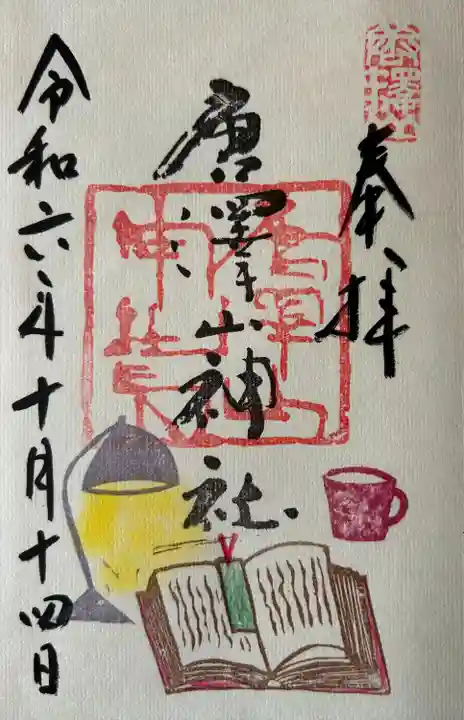 奉拝
唐澤山神社
令和六年十月十四日